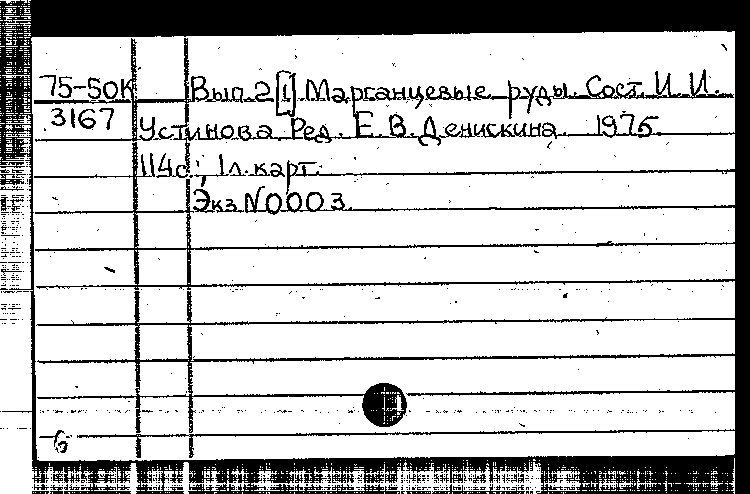 75-50К Вып.2[1] Марганцевые руды. Сост. И. И.
3167 Устинова. Ред. Е. В. Денискина. 1975.
114с.; 1л. карт.
Экз N0003.
6